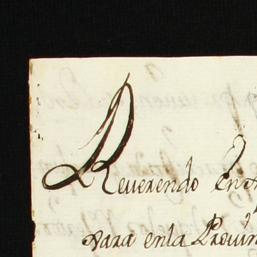 Reverendo en
para enla Provin